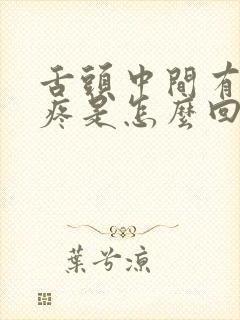 舌頭中間有
疼是怎麼回
葉兮涼